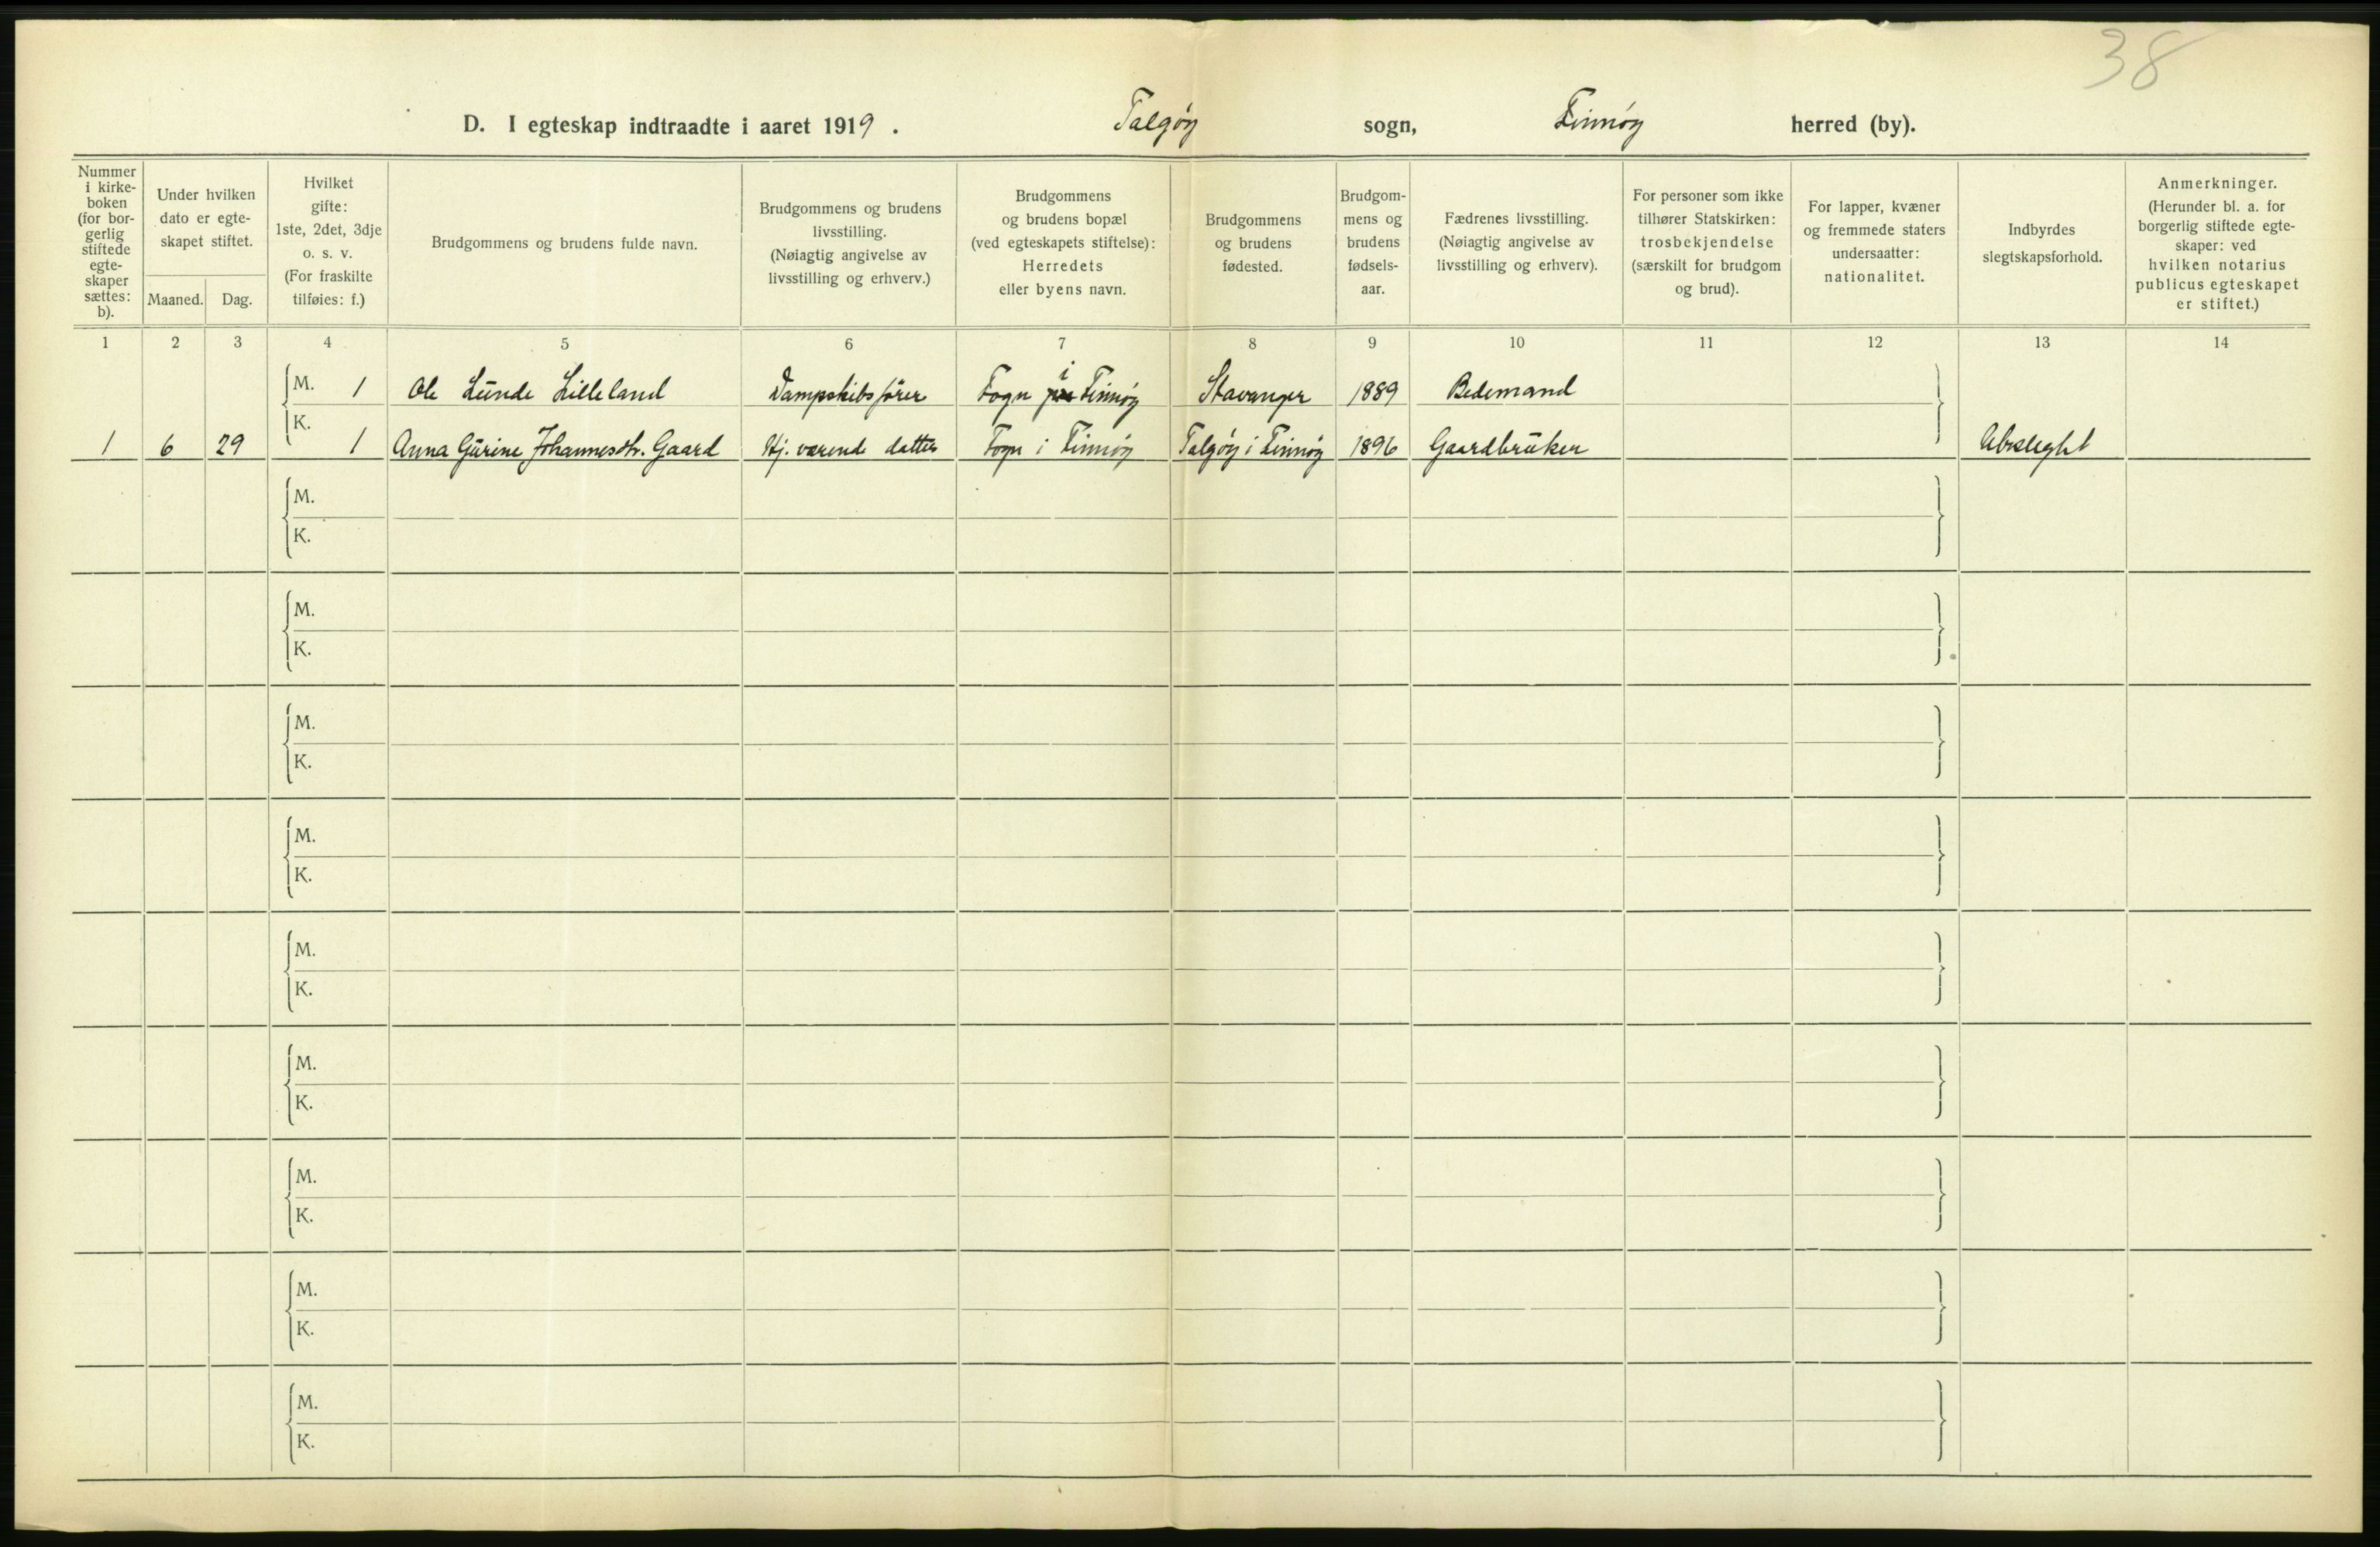 38
D. I egteskap indtraadte i aaret 1919. Talgøy sogn, Finnøy herred (by).
Nummer i kirkeboken (for borgerlig stiftede egteskaper sættes: b).
Under hvilken dato er egteskapet stiftet.
Maaned. Dag.
Hvilket gifte: 1ste, 2det, 3dje o. s. v. (For fraskilte tilføies: f.)
Brudgommens og brudens fulde navn.
Brudgommens og brudens livsstilling. (Nøiagtig angivelse av livsstilling og erhverv.)
Brudgommens og brudens bopæl (ved egteskapets stiftelse): Herredets eller byens navn.
Brudgommens og brudens fødested.
Brudgommens og brudens fødselsaar.
Fædrenes livsstilling. (Nøiagtig angivelse av livsstilling og erhverv).
For personer som ikke tilhører Statskirken: trosbekjendelse (særskilt for brudgom og brud).
For lapper, kvæner og fremmede staters undersaatter: nationalitet.
Indbyrdes slegtskapsforhold.
Anmerkninger. (Herunder bl. a. for borgerlig stiftede egteskaper: ved hvilken notarius publicus egteskapet er stiftet.)
1 2 3 4 5 6 7 8 9 10 11 12 13 14
M. 1 Ole Lunde Lilleland Dampskibsfører Fogn i Finnøy Stavanger 1889 Bedemand
K.
1 6 29 1 Anna Gurine Johannesdtr. Gaard Hj. værende datter Fogn i Finnøy Talgøy i Finnøy 1896 Gaardbruker Ubeslegtet
M.
K.
M.
K.
M.
K.
M.
K.
M.
K.
M.
K.
M.
K.
M.
K.
M.
K.